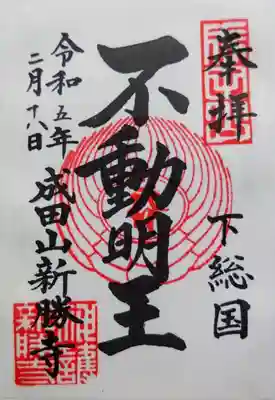 奉拝
下総国
不動明王
成田山新勝寺
令和五年
二月十八日